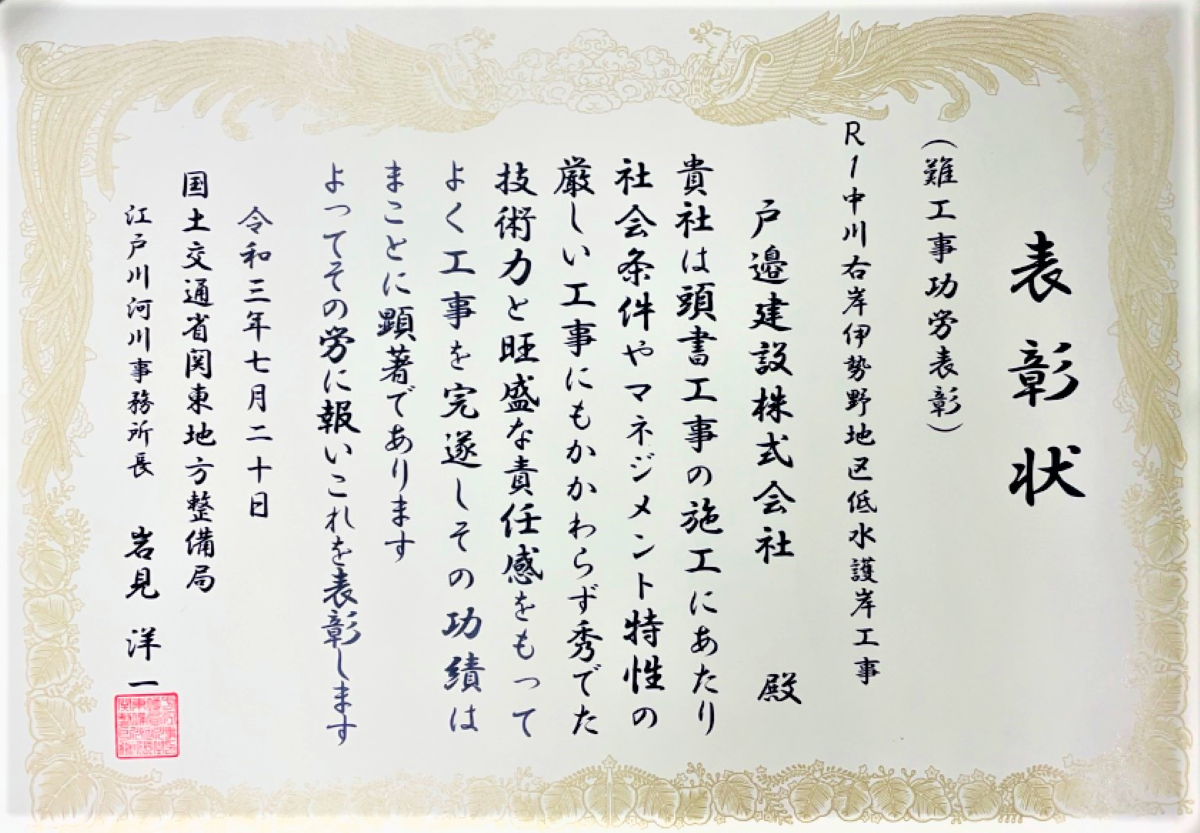 表彰状
(難工事功労表彰)
R1中川右岸伊勢野地区低水護岸工事
戸邉建設株式会社 殿
貴社は頭書工事の施工にあたり
社会条件やマネジメント特性の
厳しい工事にもかかわらず秀でた
技術力と旺盛な責任感をもって
よく工事を完遂しその功績は
まことに顕著であります
よってその労に報いこれを表彰します
令和三年七月二十日
国土交通省関東地方整備局
江戸川河川事務所長 岩見 洋一